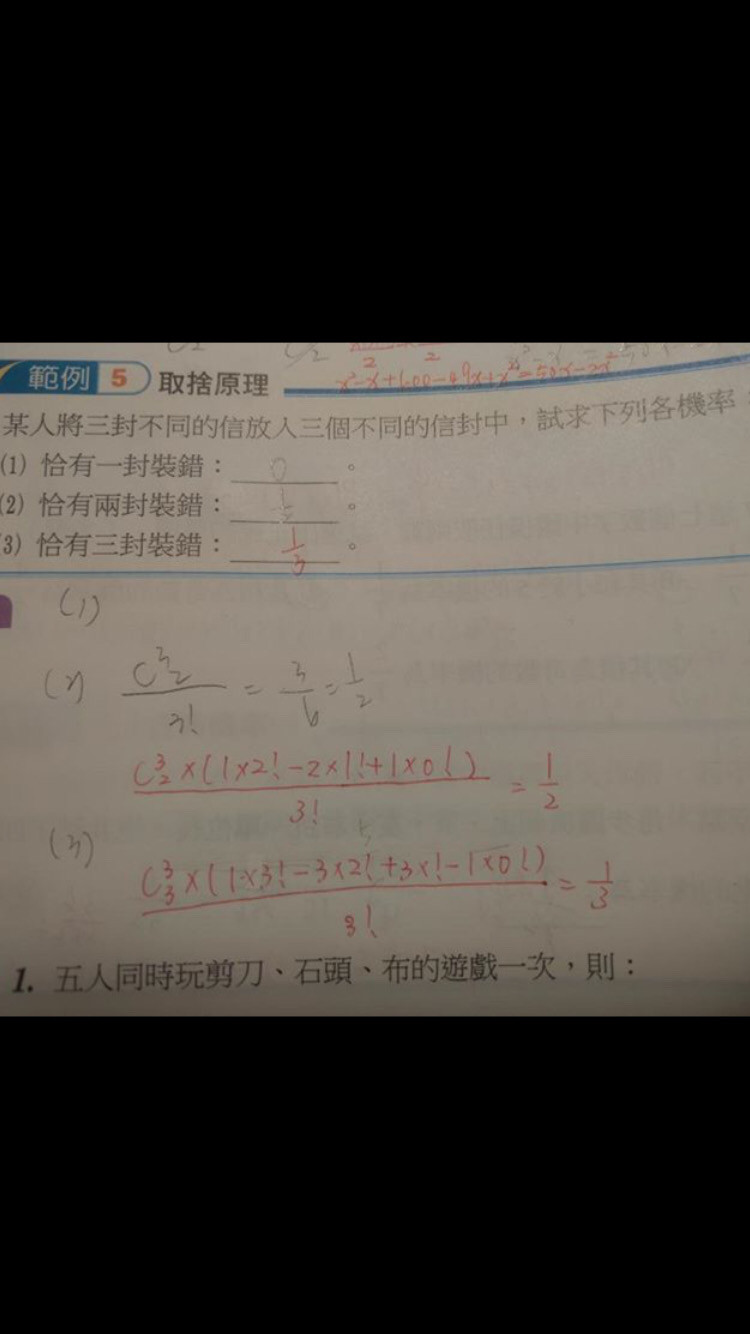 範例 5 取捨原理
x²-x+600-49x+x²=50x-2x²
某人將三封不同的信放入三個不同的信封中，試求下列各機率：
(1) 恰有一封裝錯：0。
(2) 恰有兩封裝錯：1/2。
(3) 恰有三封裝錯：1/3。
(1)
(2) C³₂/3! = 3/6 = 1/2
C³₂×(1×2!-2×1!+1×0!)/3! = 1/2
(3)
C³₃×(1×3!-3×2!+3×1!-1×0!)/3! = 1/3
1. 五人同時玩剪刀、石頭、布的遊戲一次，則：